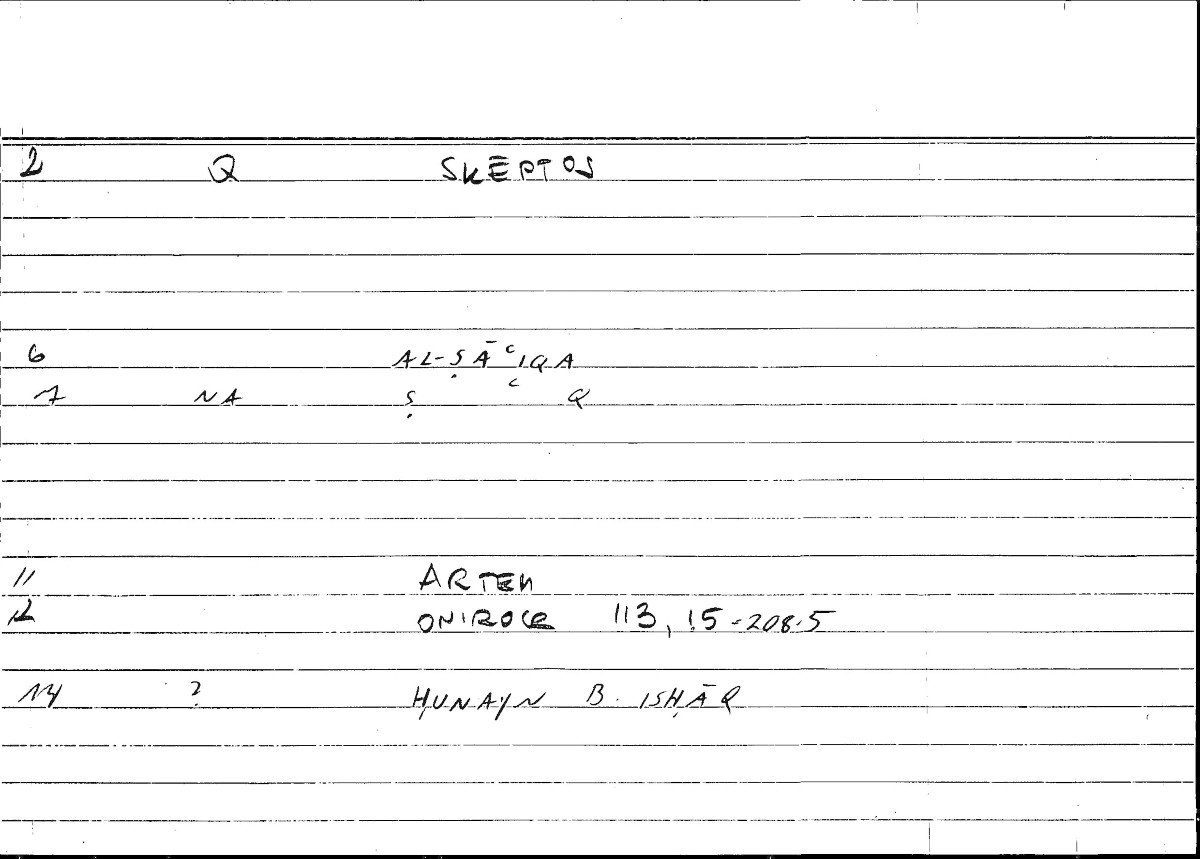 2 Q SKĒPTOS
6 AL-ṢĀʿIQA
7 NA Ṣ ʿ Q
11 ARTEM
12 ONIROCR 113, 15-208.5
14 ? ḤUNAYN B. ISḤĀQ